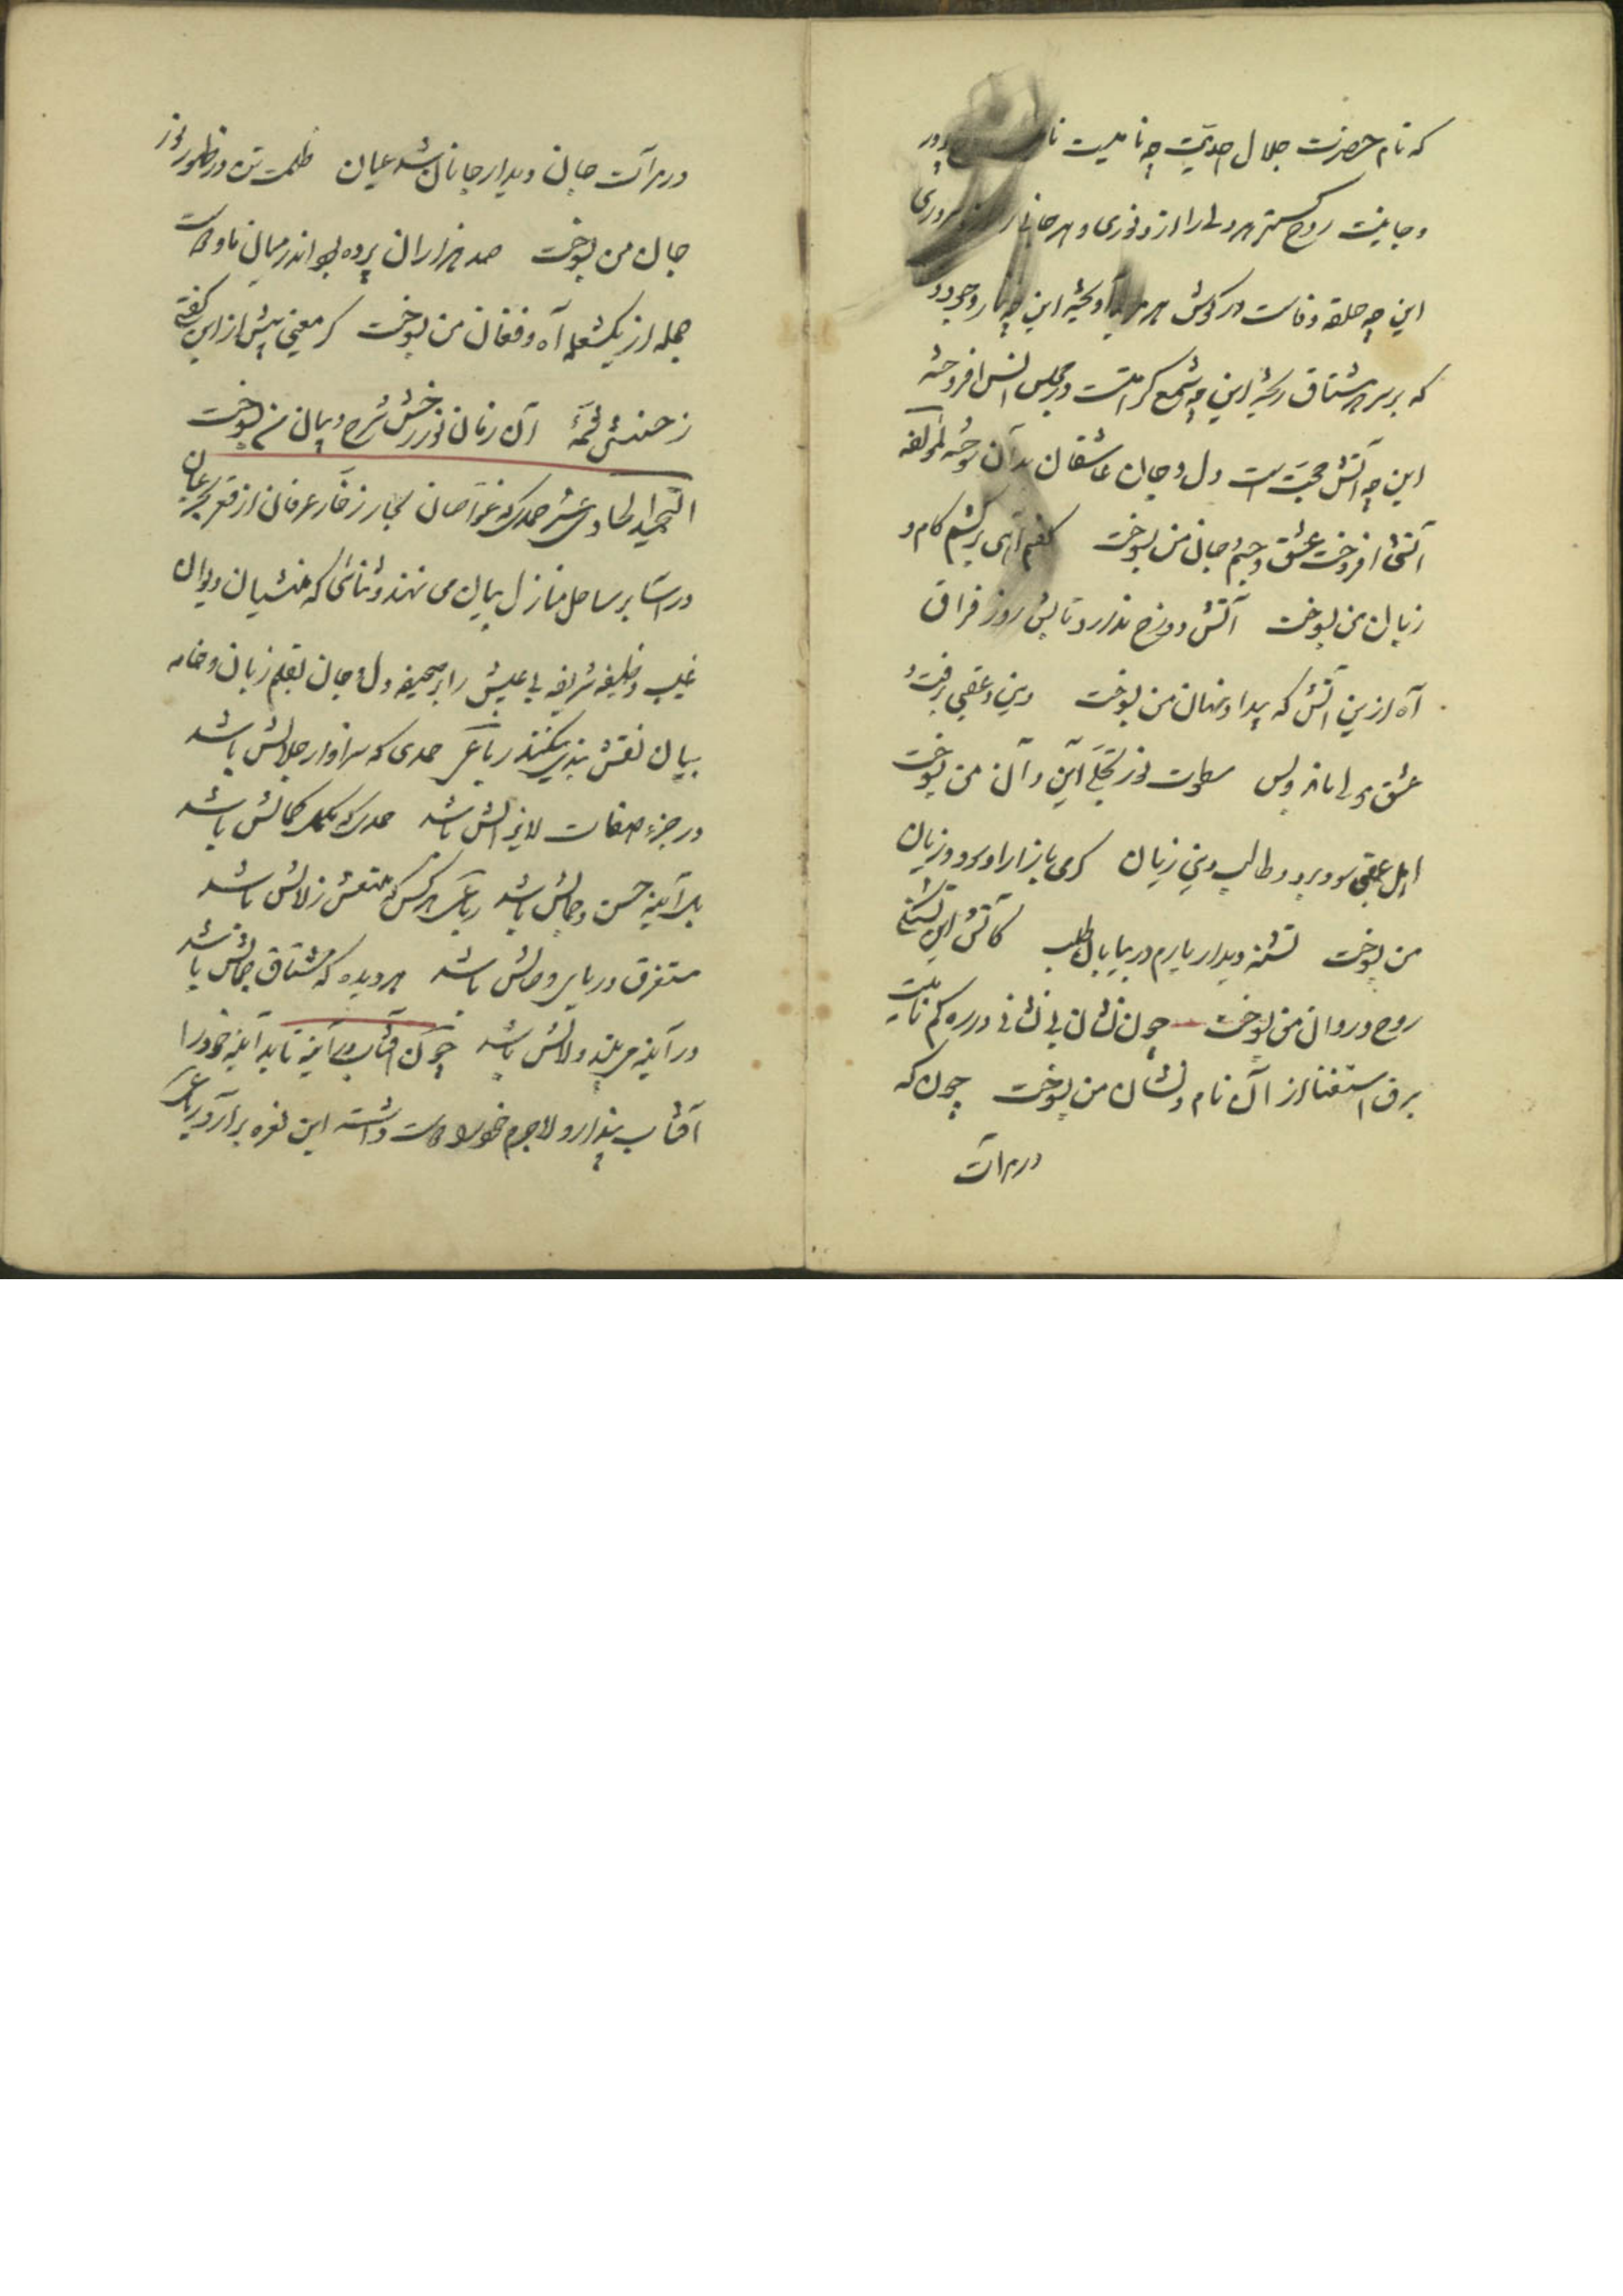 که نام حضرت جلال احدیت چه نامیست
و جانیست روح گستر هر دلی را ازو نوری و هر جانی را ازو سروری
این چه حلقه وفاست در گوش هر آویخته این چه
که بر سر هر مشتاق ریخته این چه شمع کرامتست در مجلس انس افروخته
این چه آتش محبت است دل و جان عاشقان بدان سوخته لمؤلفه
آتشی افروخت عشق و جسم و جان من بسوخت گفتم آهی برکشم کام و
زبان من بسوخت آتش دوزخ ندارد تابش روز فراق
آه ازین آتش که پیدا و نهان من بسوخت دین و عقبی برفت و
عشق مولی ماند و بس سطوت نور تجلی این و آن من بسوخت
اهل عقبی سود برد و طالب دنیی زیان گرمی بازار او سود و زیان
من بسوخت تشنه دیدار یارم در بیابان طلب کآتش این تشنگی
روح و روان من بسوخت چون نشان بی نشانی در ره گم نامیست
برق استغنا از آن نام و نشان من بسوخت چون که
در مرآت
در مرآت جان دیدار جانان شد عیان ظلمت تن در ظهور نور
جان من بسوخت صد هزاران پرده بود اندر میان ما و دوست
جمله از یک شعله آه و فغان من بسوخت گر معینی پیش ازین گفتی
ز حسنش شمهٔ آن زمان نور رخش شرح و بیان من بسوخت
التحمید الحادی عشر حمدی که غواصان بحار زخار عرفان از قعر بحر عیان
بر ساحل منازل بیان می نهند و ثنائی که منشیان دیوان
غیب وظیفه شریفه بی عیبش را بر صحیفه دل و جان بقلم زبان و خامه
بیان نقش پذیر میکنند رباعی حمدی که سزاوار جلالش باشد
در جزء صفات لایزالش باشد حمدی که بملک کمالش باشد
بل آینه حسن و جمالش باشد رباعی هر کس که متعطش زلالش باشد
مستغرق دریای وصالش باشد هر دیده که مشتاق جمالش باشد
در آینه مهر و ولاش باشد چون آفتاب در آینه تابد آینه خود را
آفتاب پندارد لاجرم خود را دوست داشته این نعره برآرد رباعی